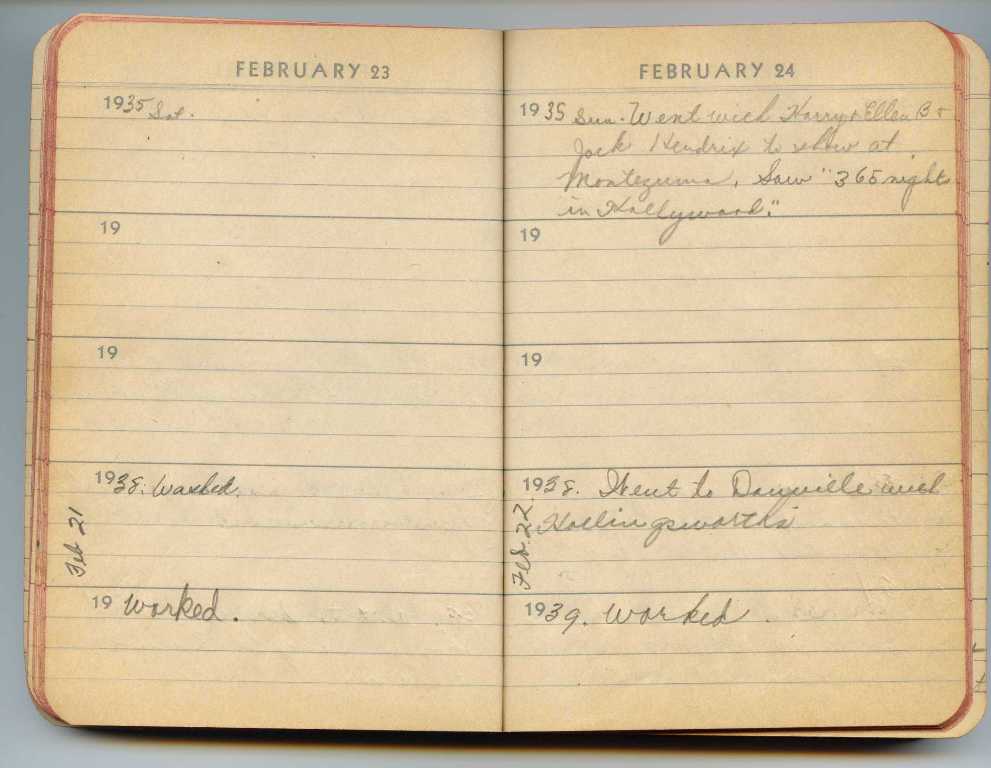 FEBRUARY 23
1935 Sat.
19
19
1938. Washed.
Feb 21
19 Worked.
FEBRUARY 24
1935 Sun. Went with Harry & Ellen B &
Jack Hendrix to show at
Montezuma. Saw "365 nights
in Hollywood."
19
19
1938. Went to Danville with
Hollingsworths
Feb. 22
1939. Worked.